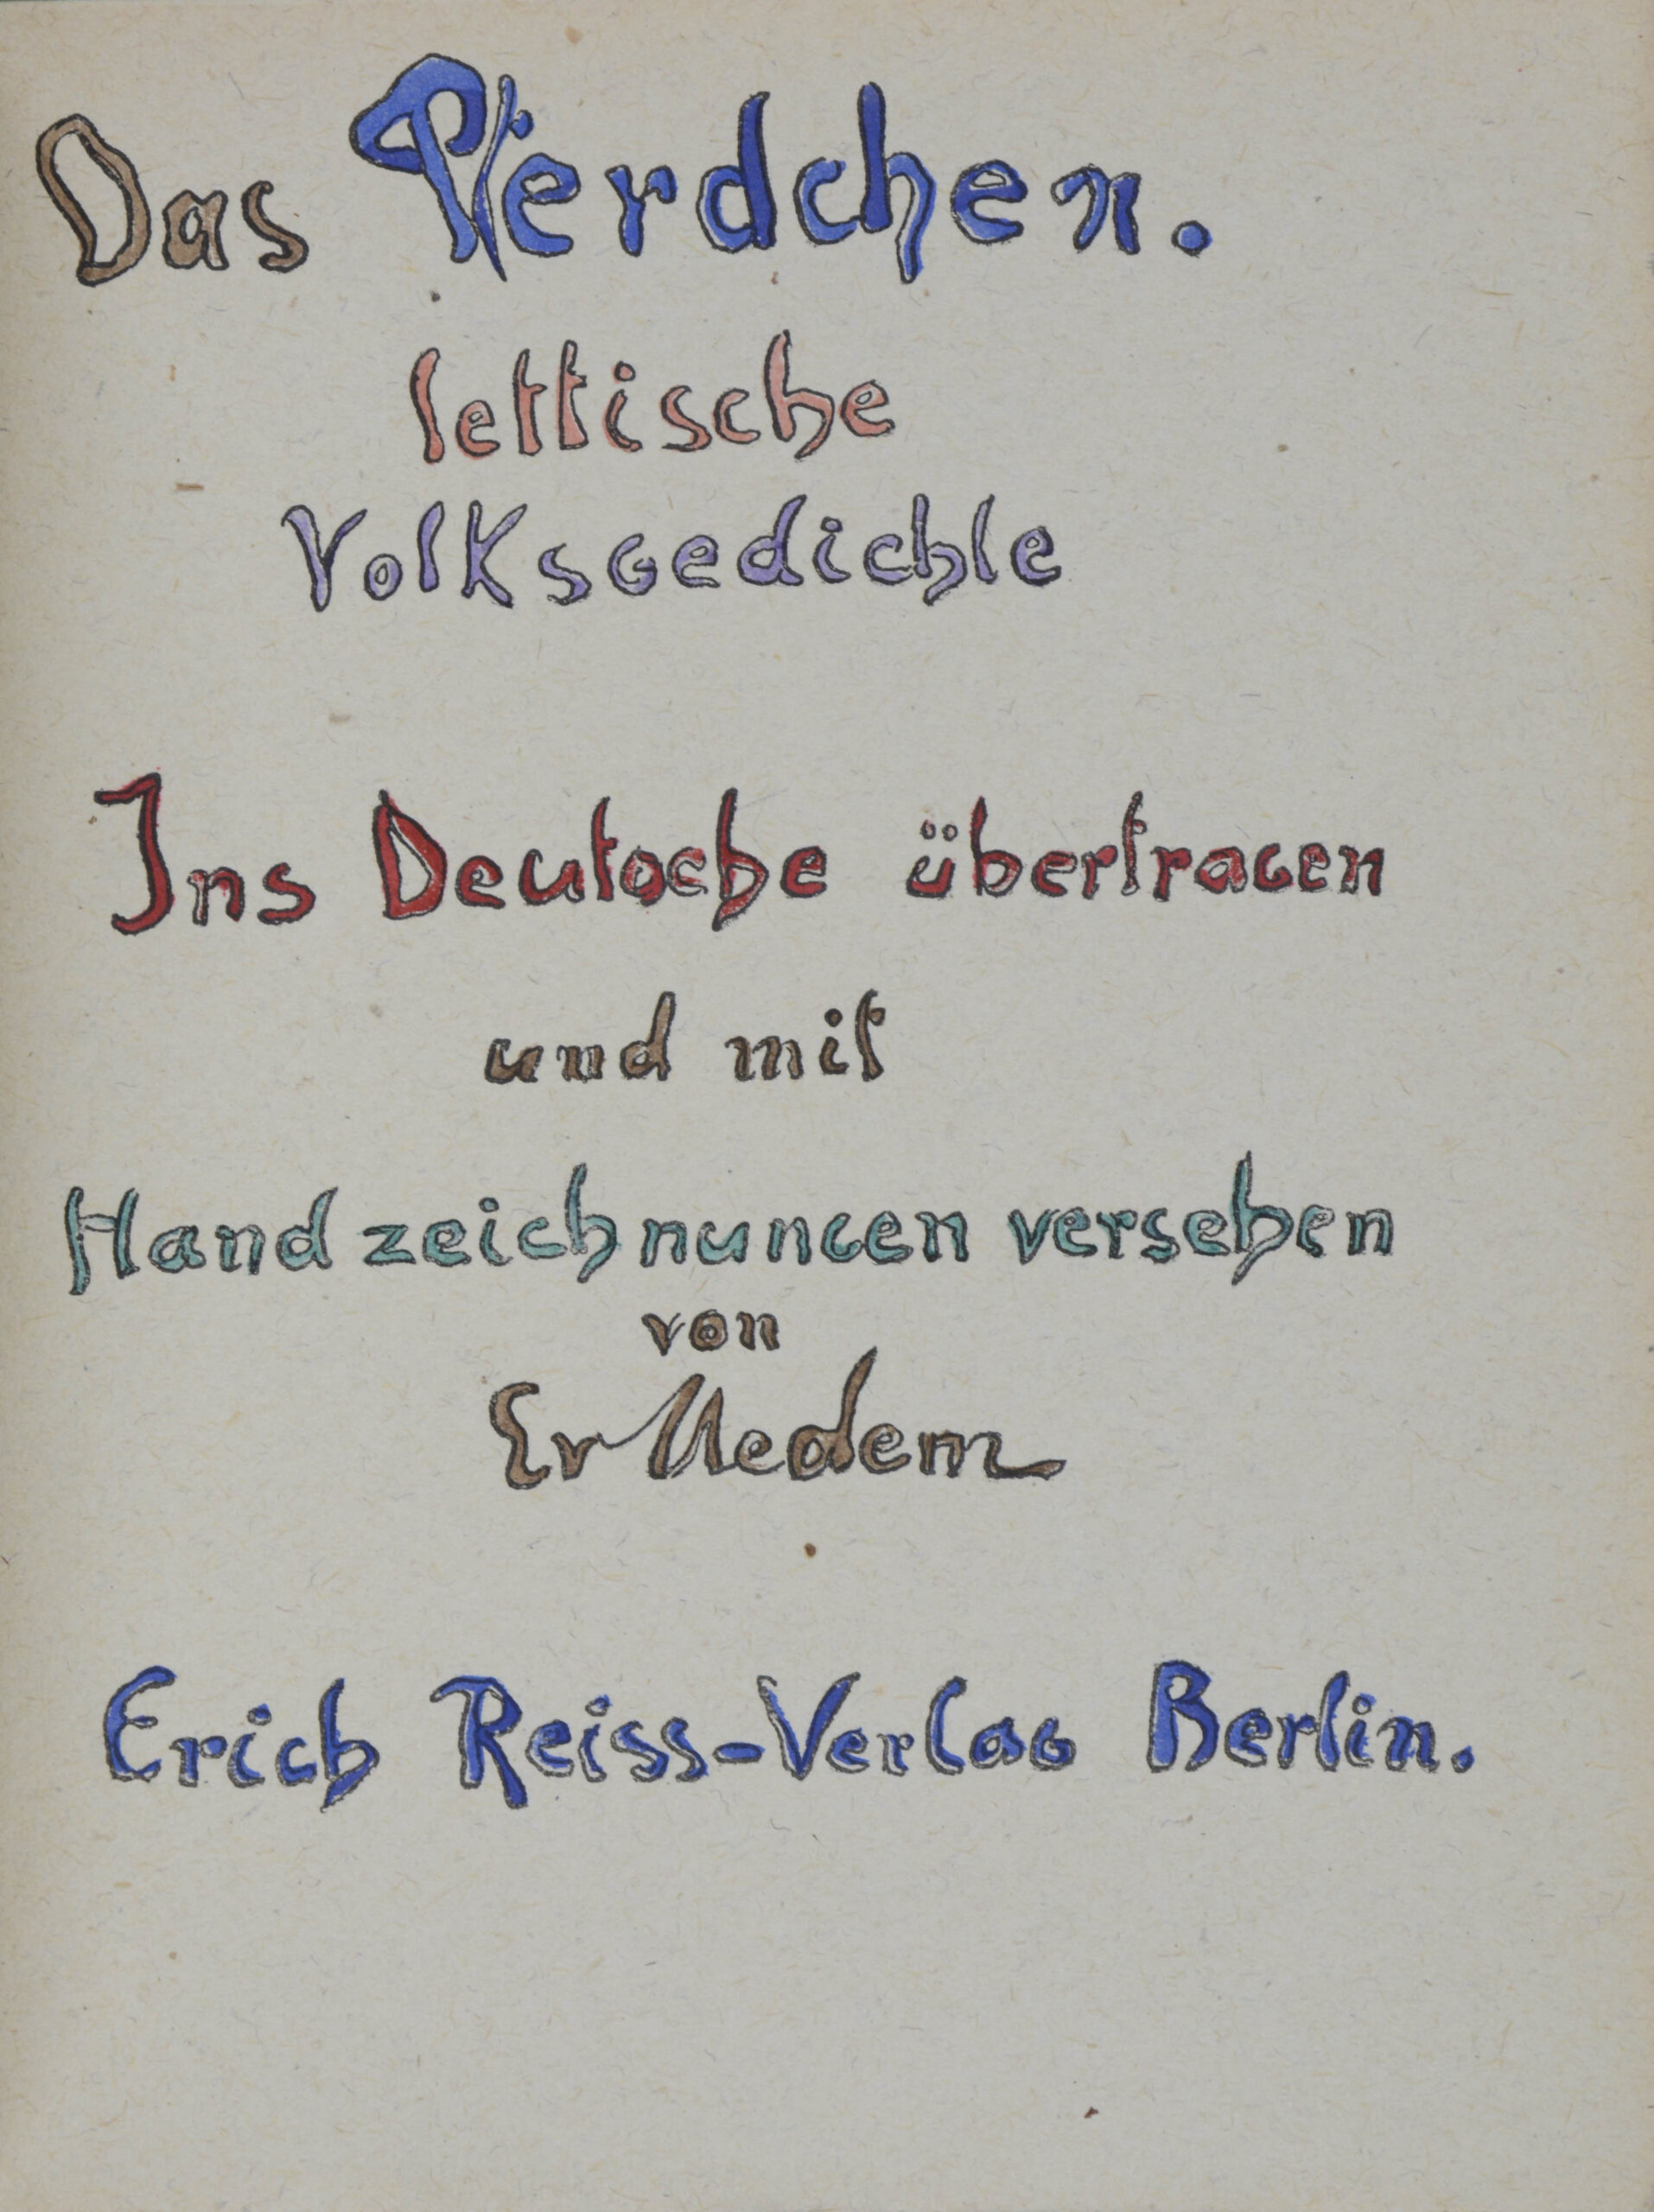 Das Pferdchen.
lettische
Volksgedichte
Ins Deutsche übertragen
und mit
Handzeichnungen versehen
von
Ev Medem
Erich Reiss-Verlag Berlin.